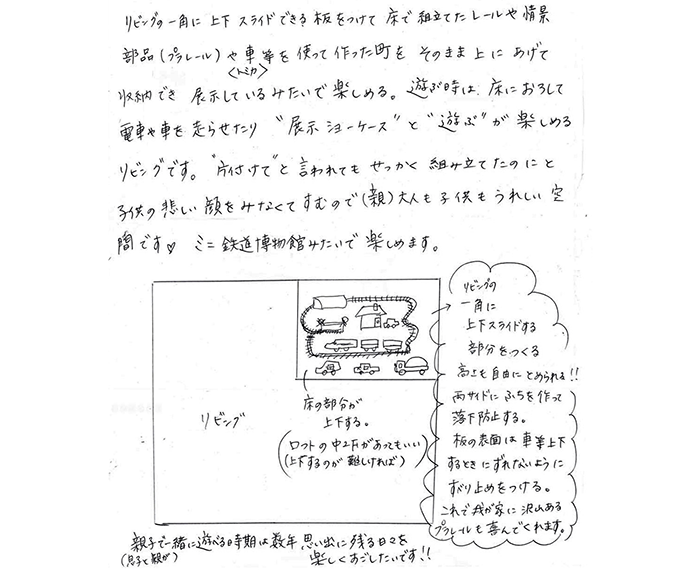 リビングの一角に上下スライドできる板をつけて床で組立てたレールや情景
部品(プラレール)や車等を使って作った町をそのまま上にあげて
<トミカ>
収納でき展示しているみたいで楽しめる。遊ぶ時は、床におろして
電車や車を走らせたり"展示ショーケース"と"遊ぶ"が楽しめる
リビングです。"片付けて"と言われてもせっかく組み立てたのにと
子供の悲しい顔をみなくてすむので(親)大人も子供もうれしい空
間です♡ ミニ鉄道博物館みたいで楽しめます。
リビング
床の部分が
上下する。
(ロフトの中2Fがあってもいい
(上下するのが難しければ)
リビングの
一角に
上下スライドする
部分をつくる
高さも自由にとめられる!!
両サイドにふちを作って
落下防止する。
板の表面は車等上下
するときにずれないように
すべり止めをつける。
これで我が家に沢山ある
プラレールも喜んでくれます。
親子で一緒に遊べる時期は数年思い出に残る日々を
(息子と親が)
楽しくすごしたいです!!